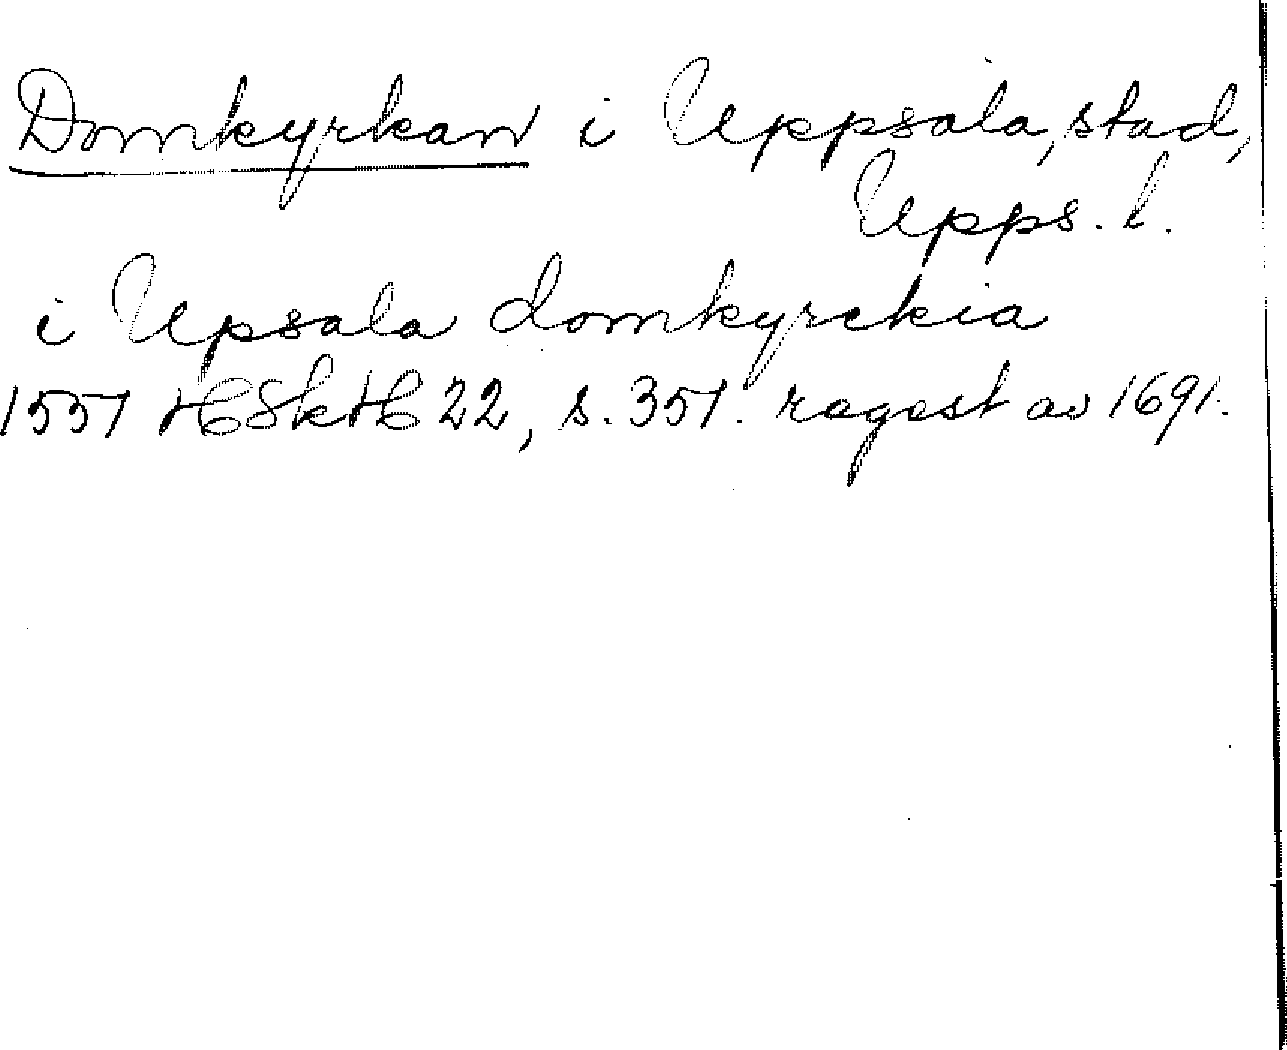 Domkyrkan i Uppsala, stad,
Upps. l.
i Upsala domkyrckia
1557 HSkH 22, s. 357. regest av 1691.